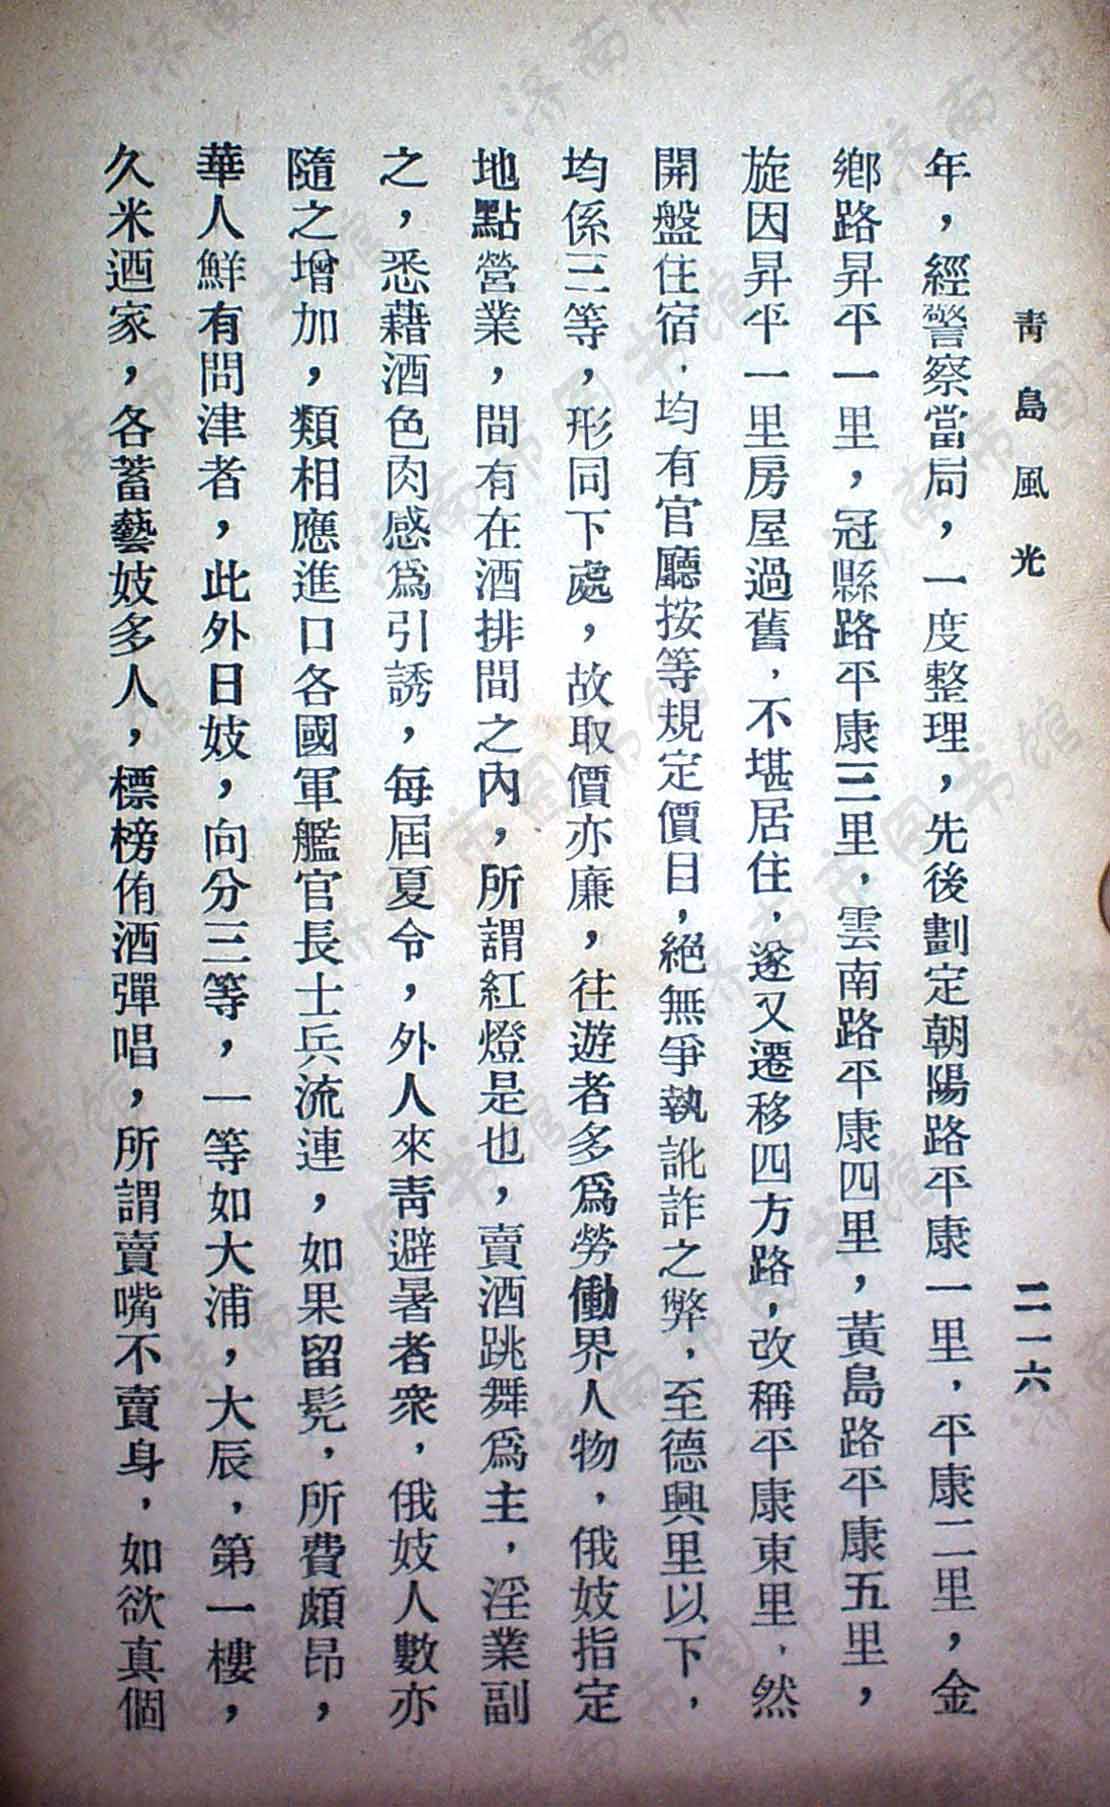 青島風光
二一六
年，經警察當局，一度整理，先後劃定朝陽路平康一里，平康二里，金
鄉路昇平一里，冠縣路平康三里，雲南路平康四里，黃島路平康五里，
旋因昇平一里房屋過舊，不堪居住，遂又遷移四方路，改稱平康東里，然
開盤住宿，均有官廳按等規定價目，絕無爭執訛詐之弊，至德興里以下，
均係三等，形同下處，故取價亦廉，往遊者多爲勞働界人物，俄妓指定
地點營業，間有在酒排間之內，所謂紅燈是也，賣酒跳舞爲主，淫業副
之，悉藉酒色肉感爲引誘，每屆夏令，外人來靑避暑者衆，俄妓人數亦
隨之增加，類相應進口各國軍艦官長士兵流連，如果留髠，所費頗昂，
華人鮮有問津者，此外日妓，向分三等，一等如大浦，大辰，第一樓，
久米酒家，各蓄藝妓多人，標榜侑酒彈唱，所謂賣嘴不賣身，如欲真個
济南市图书馆